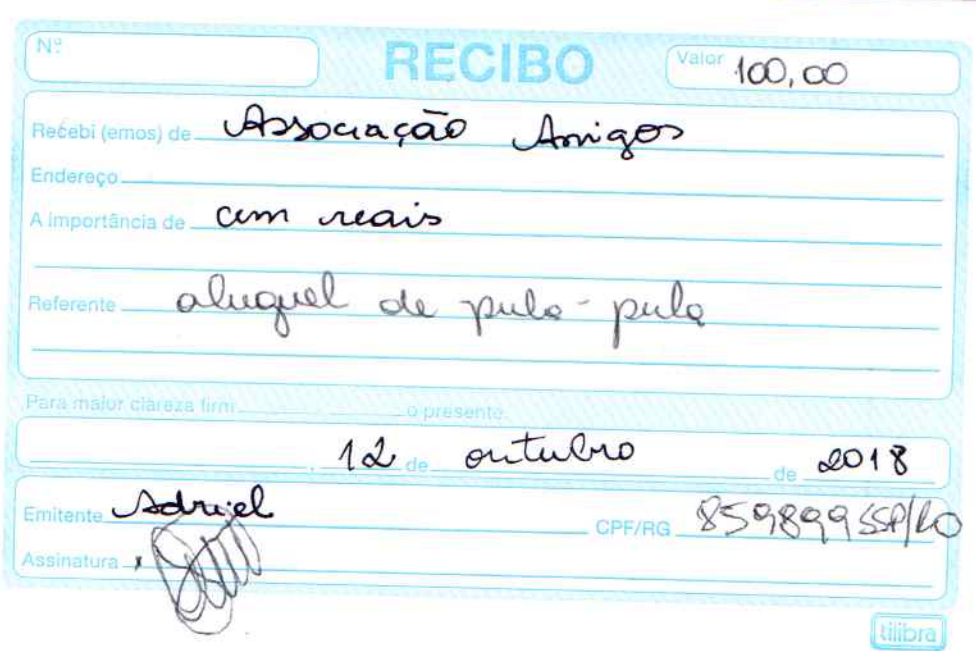 Nº
RECIBO
Valor 100,00
Recebi (emos) de Associação Amigos
Endereço
A importância de cem reais
Referente aluguel de pula-pula
Para maior clareza firm o presente.
, 12 de outubro de 2018
Emitente Adriel CPF/RG 859899 SSP/RO
Assinatura x
tilibra